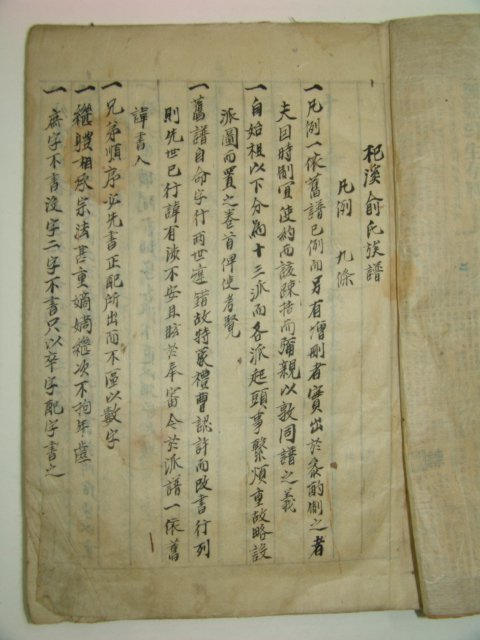 杞溪俞氏族譜
凡例 九條
一凡例一依舊譜已例而另有增刪者實出於參酌倒之者
夫因時制宜使約而該疎括而彌親以敦同譜之義
一自始祖以下分爲十三派而各派起頭事繫煩重故略設
派圖而置之卷首俾使考覽
一舊譜自命字行兩世違錯故特蒙禮曹認許而改書行列
則先世已行諱有涉不安且眩於奉審今於派譜一依舊
諱書入
一兄弟順序必先書正配所出而不區以數字
一繼相承宗法甚重嫡嫡繼次不拘年歲
一庶字不書沒字二字不書只以卒字配字書之